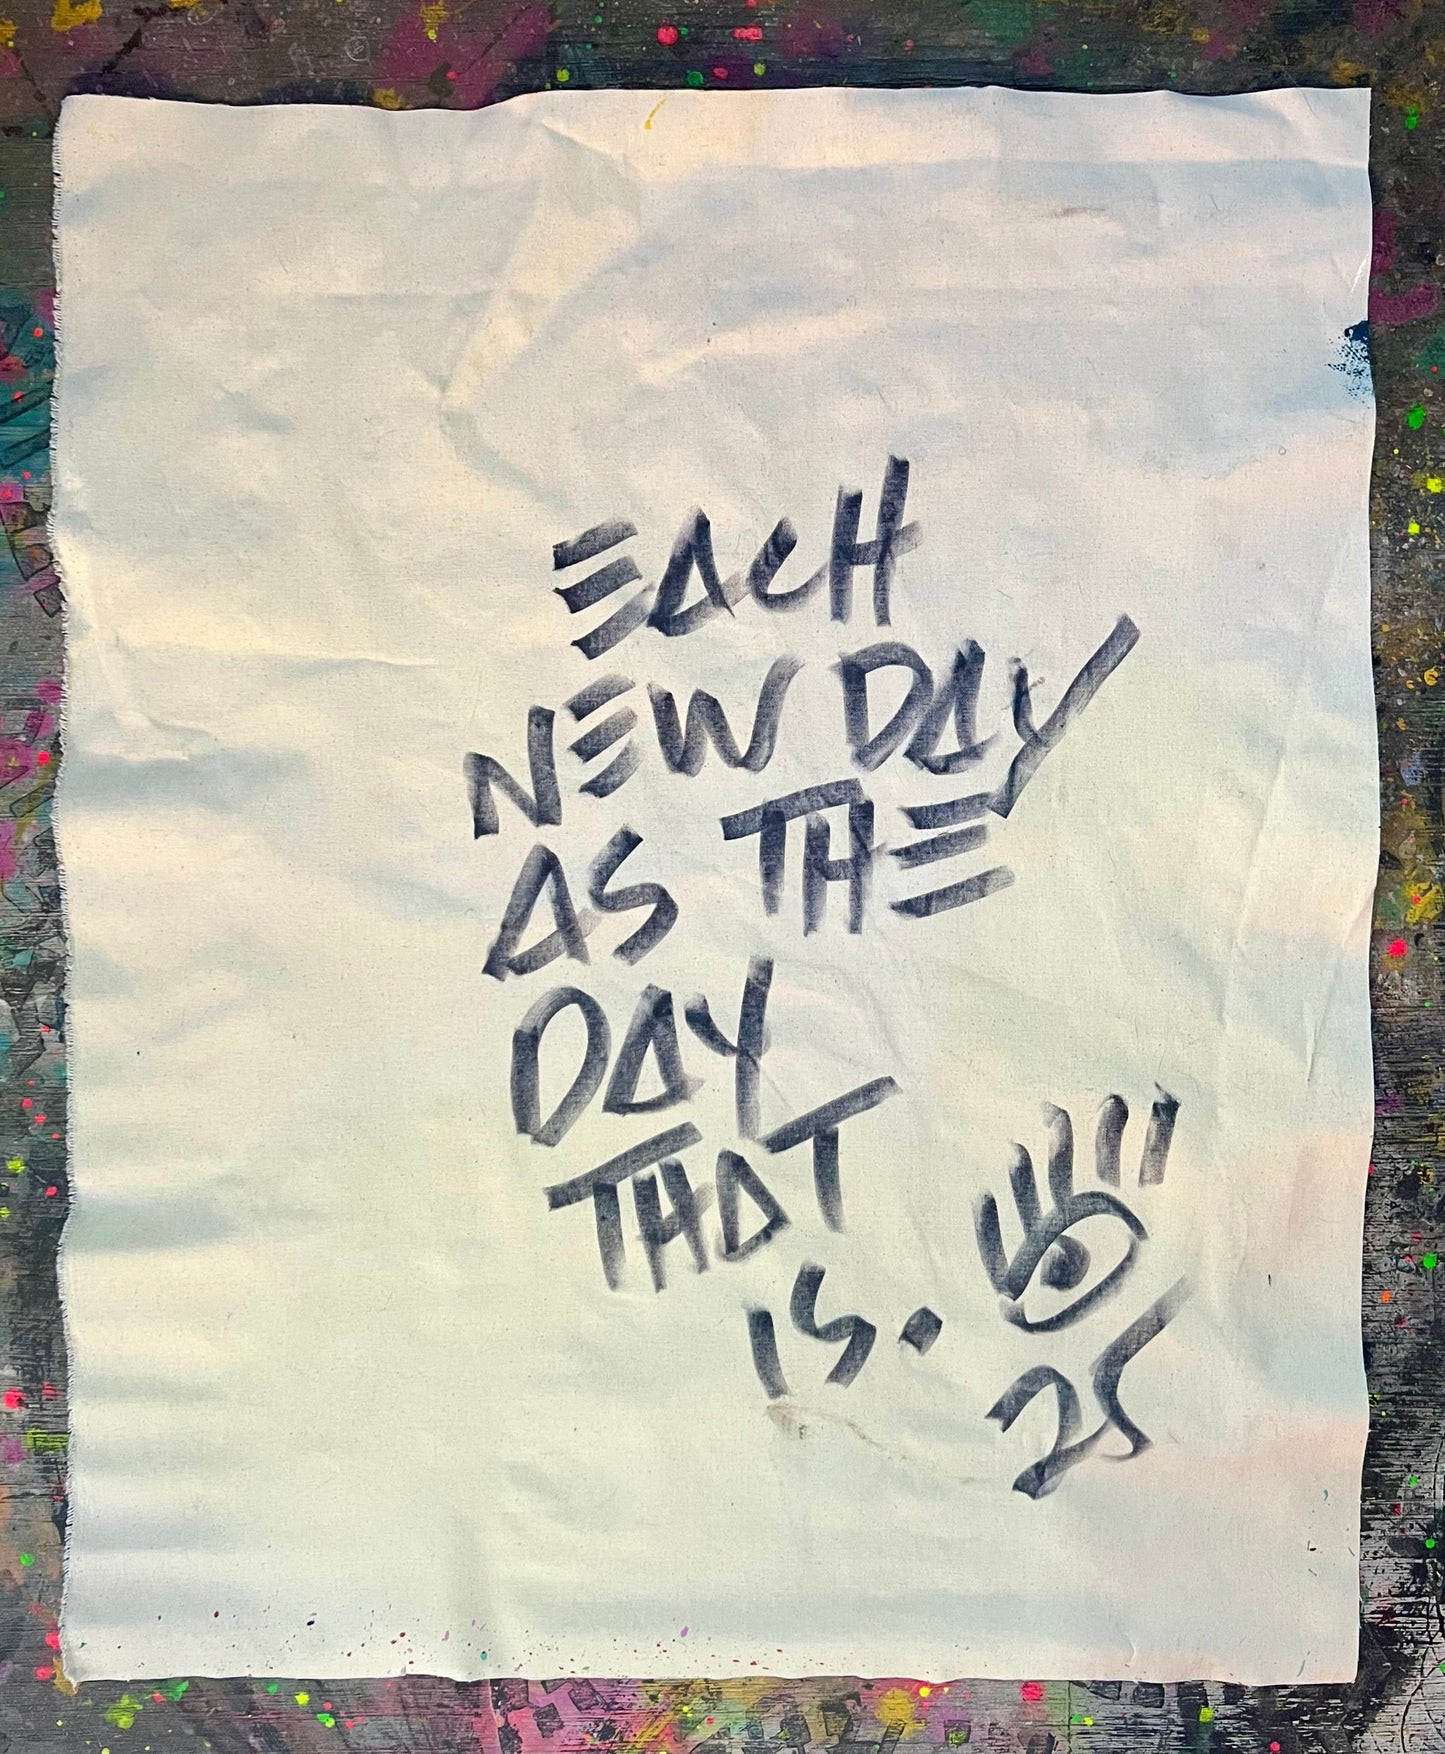 EACH
NEW DAY
AS THE
DAY
THAT
IS.
25